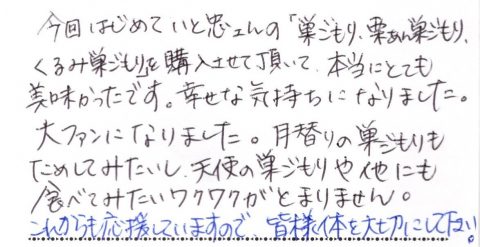 今回はじめていと忠さんの「巣ごもり、栗あん巣ごもり、
くるみ巣ごもり」を購入させて頂いて、本当にとても
美味かったです。幸せな気持ちになりました。
大ファンになりました。月替りの巣ごもりも
ためしてみたいし、天使の巣ごもりや他にも
食べてみたいワクワクがとまりません。
これからも応援していますので、皆様体を大切にして下さい。